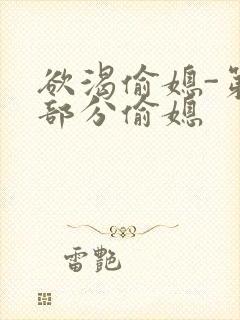 欲渴偷媳-第
部分偷媳
雷艷